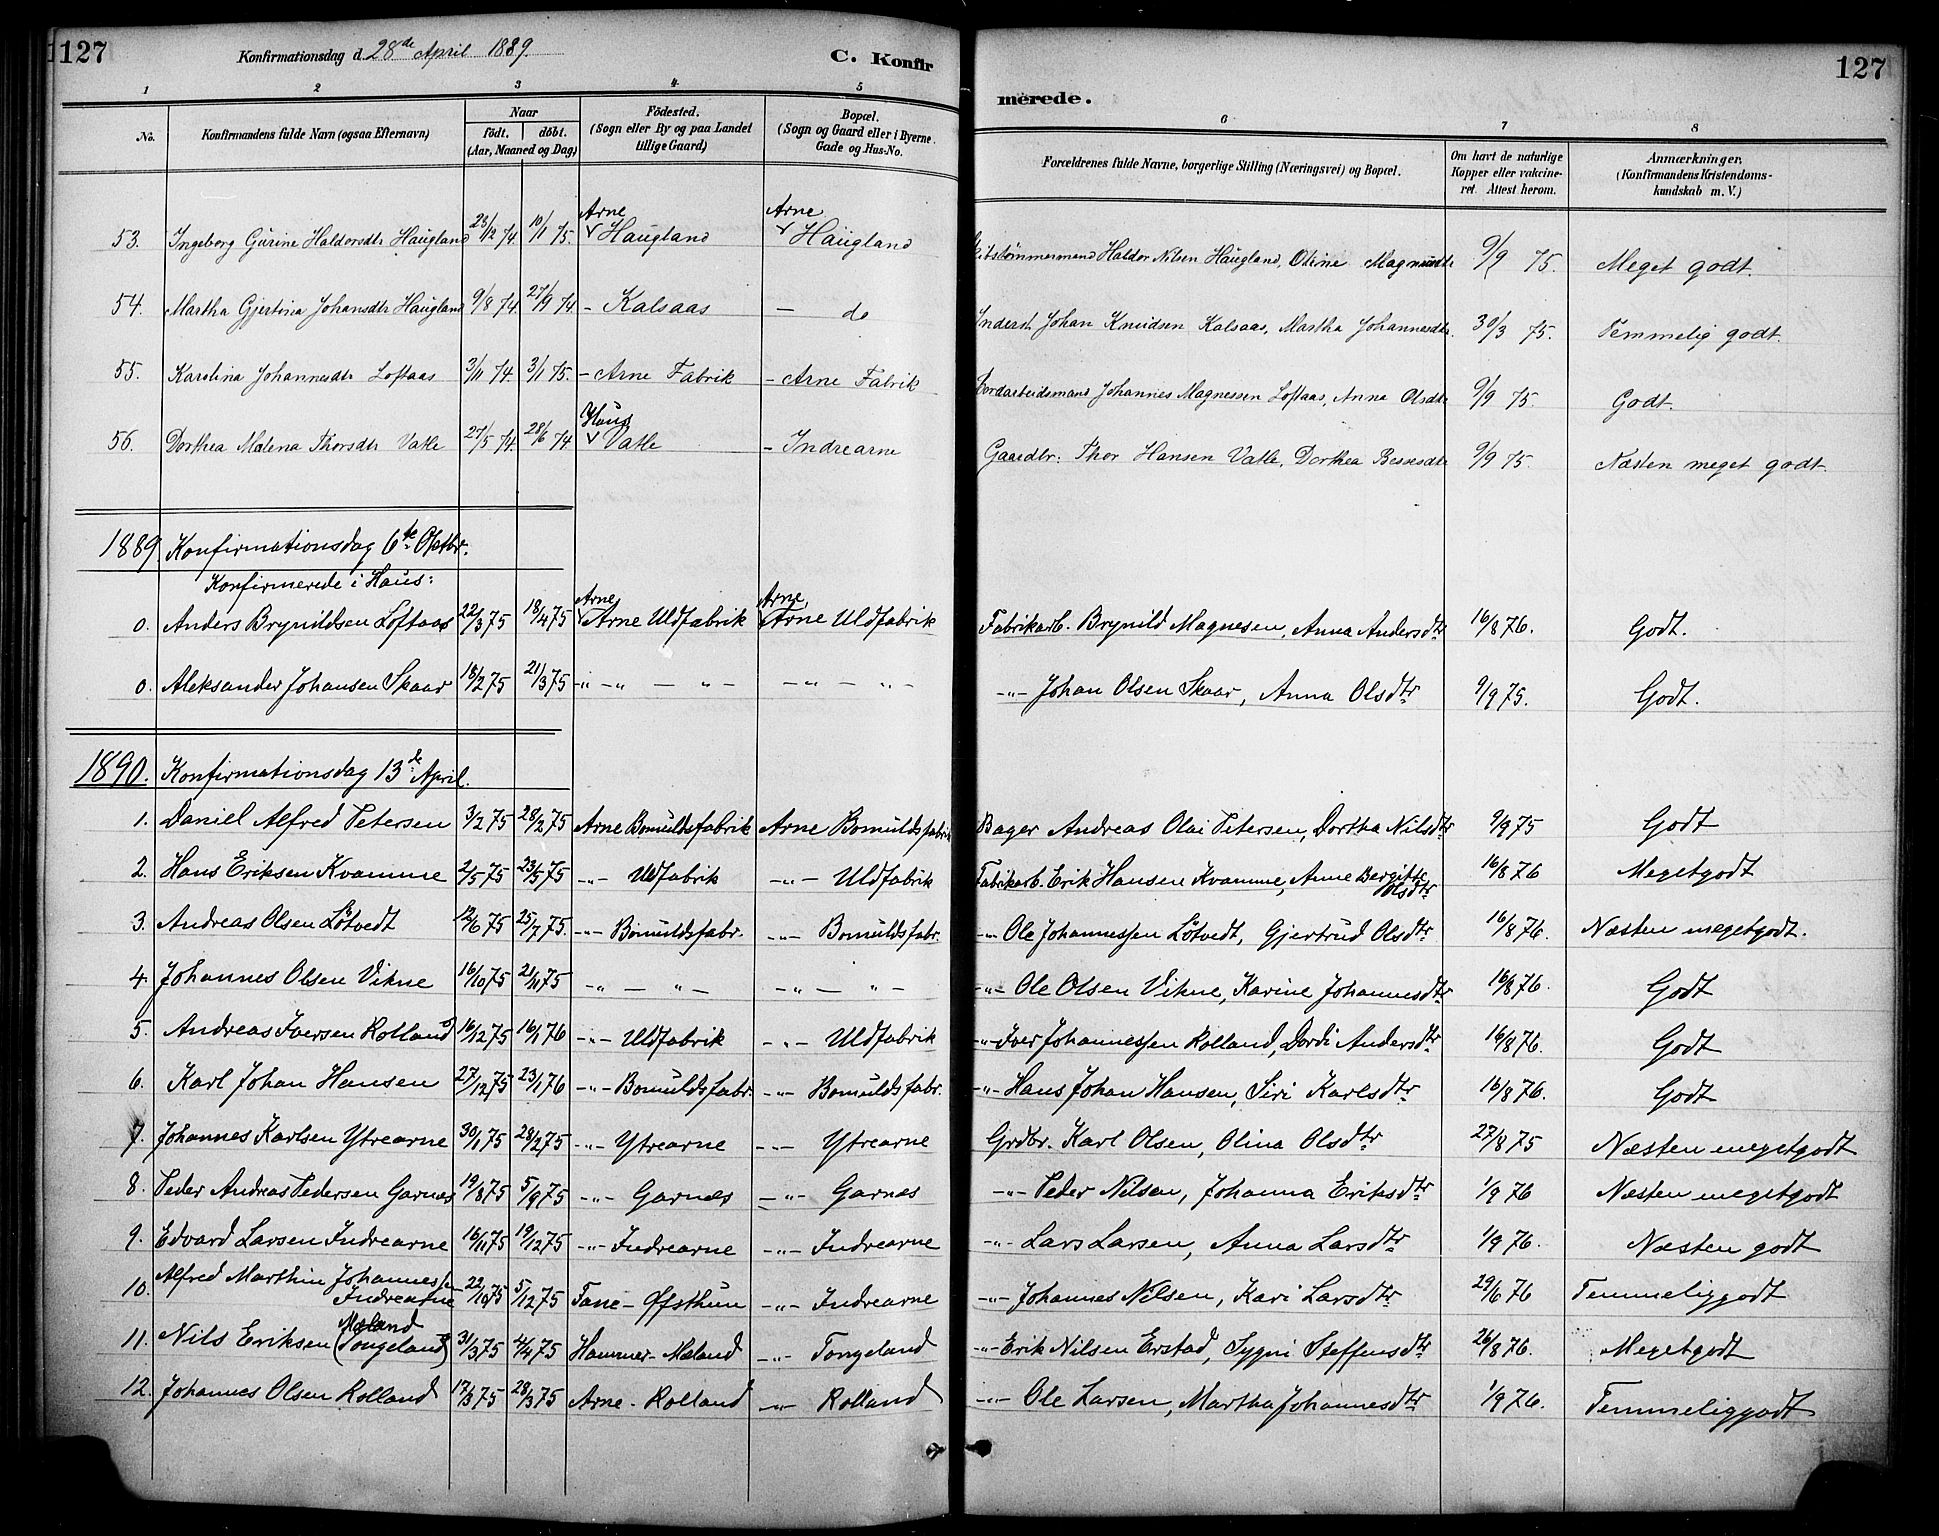 127 Konfirmationsdag d. 28de April 1889. C. Konfirmerede. 127
1 2 3 4 5 6 7 8
No. Konfirmandens fulde Navn (ogsaa Efternavn) Naar født. døbt. (Aar, Maaned og Dag) Födested. (Sogn eller By og paa Landet tillige Gaard) Bopæl. (Sogn og Gaard eller i Byerne Gade og Hus-No. Forældrenes fulde Navne, borgerlige Stilling (Næringsvei) og Bopæl. Om havt de naturlige Kopper eller vakcineret. Attest herom. Anmærkninger. (Konfirmandens Kristendomskundskab m. V.)
53. Ingeborg Gurine Haldorsdtr Haugland 23/12 74. 10/1 75. Arne Haugland Arne Haugland Skibstømmermand Haldor Nilsen Haugland, Oline Magnusdtr 9/9 75. Meget godt.
54. Martha Gjertina Johansdtr Haugland 9/8 74 27/9 74 - Kalsaas — do Inderst. Johan Knudsen Kalsaas, Martha Johannesdtr. 30/3 75. Temmelig godt.
55. Karolina Johannesdtr Loftaas 3/11 74. 3/1 75. - Arne Fabrik - Arne Fabrik Jordarbeidsmand Johannes Magnessen Loftaas, Anna Olsdtr 9/9 75. Godt.
56. Dorthea Malena Thorsdtr Vatle 27/5 74. 28/6 74 Haus Vatle - Indrearne Gaardbr: Thor Hansen Vatle, Dorthea Bessesdtr 9/9 75. Næsten meget godt.
1889. Konfirmationsdag 6te Oktbr.
Konfirmerede i Haus:
0. Anders Brynildsen Loftaas 22/3 75 18/4 75 Arne Arne Uldfabrik Arne Arne Uldfabrik Fabrikarb. Brynild Magnesen, Anna Andersdtr 16/8 76. Godt.
0. Aleksander Johansen Skaar 18/2 75 21/3 75 -"- " — " - - " — " - -"- Johan Olsen Skaar, Anna Olsdtr 9/9 75. Godt.
1890. Konfirmationsdag 13de April.
1. Daniel Alfred Petersen 3/2 75 28/2 75 Arne Bomuldsfabrik Arne Bomuldsfabrik Bager Andreas Olai Petersen, Dortha Nilsdtr 9/9 75 Godt
2. Hans Eriksen Kvamme 2/5 75 23/5 75 -"- Uldfabrik -"- Uldfabrik Fabrikarb. Erik Hansen Kvamme, Anne Bergitte Olsdtr 16/8 76 Megetgodt
3. Andreas Olsen Løtvedt 12/6 75 25/7 75. -"- Bomuldsfabr. -"- Bomuldsfabr. -"- Ole Johannessen Løtvedt, Gjertrud Olsdtr 16/8 76. Næsten megetgodt.
4. Johannes Olsen Vikne 16/10 75 21/11 75 -"- — " - -"- — " - -"- Ole Olsen Vikne, Karine Johannesdtr 16/8 76. Godt
5. Andreas Iversen Rolland 16/12 75 16/1 76 -"- Uldfabrik -"- Uldfabrik -"- Iver Johannessen Rolland, Dordi Andersdtr 16/8 76. Godt
6. Karl Johan Hansen 27/12 75 23/1 76 -"- Bomuldsfabr. -"- Bomuldsfabr. -"- Hans Johan Hansen, Siri Karlsdtr 16/8 76. Godt
7. Johannes Karlsen Ytrearne 30/1 75 28/2 75 -"- Ytrearne -"- Ytrearne Grdbr. Karl Olsen, Olina Olsdtr 27/8 75 Næsten megetgodt
8. Peder Andreas Pedersen Garnæs 19/8 75 5/9 75 -"- Garnæs -"- Garnæs -"- Peder Nilsen, Johanna Eriksdtr 1/9 76 Næsten megetgodt
9. Edvard Larsen Indrearne 16/11 75 19/12 75 -"- Indrearne -"- Indrearne -"- Lars Larsen, Anna Larsdtr 1/9 76. Næsten godt
10. Alfred Marthin Johannessen Indrearne 22/10 75 5/12 75 Fane - Øfsthun -"- Indrearne -"- Johannes Nilsen, Kari Larsdtr 29/6 76 Temmeliggodt
11. Nils Eriksen Mæland (Tongeland) 31/3 75 4/4 75 Hammer - Mæland -"- Tongeland -"- Erik Nilsen Erstad, Sygni Steffensdtr 26/8 76. Megetgodt
12. Johannes Olsen Rolland 17/3 75 28/3 75 Arne - Rolland -"- Rolland -"- Ole Larsen, Martha Johannesdtr 1/9 76. Temmeliggodt